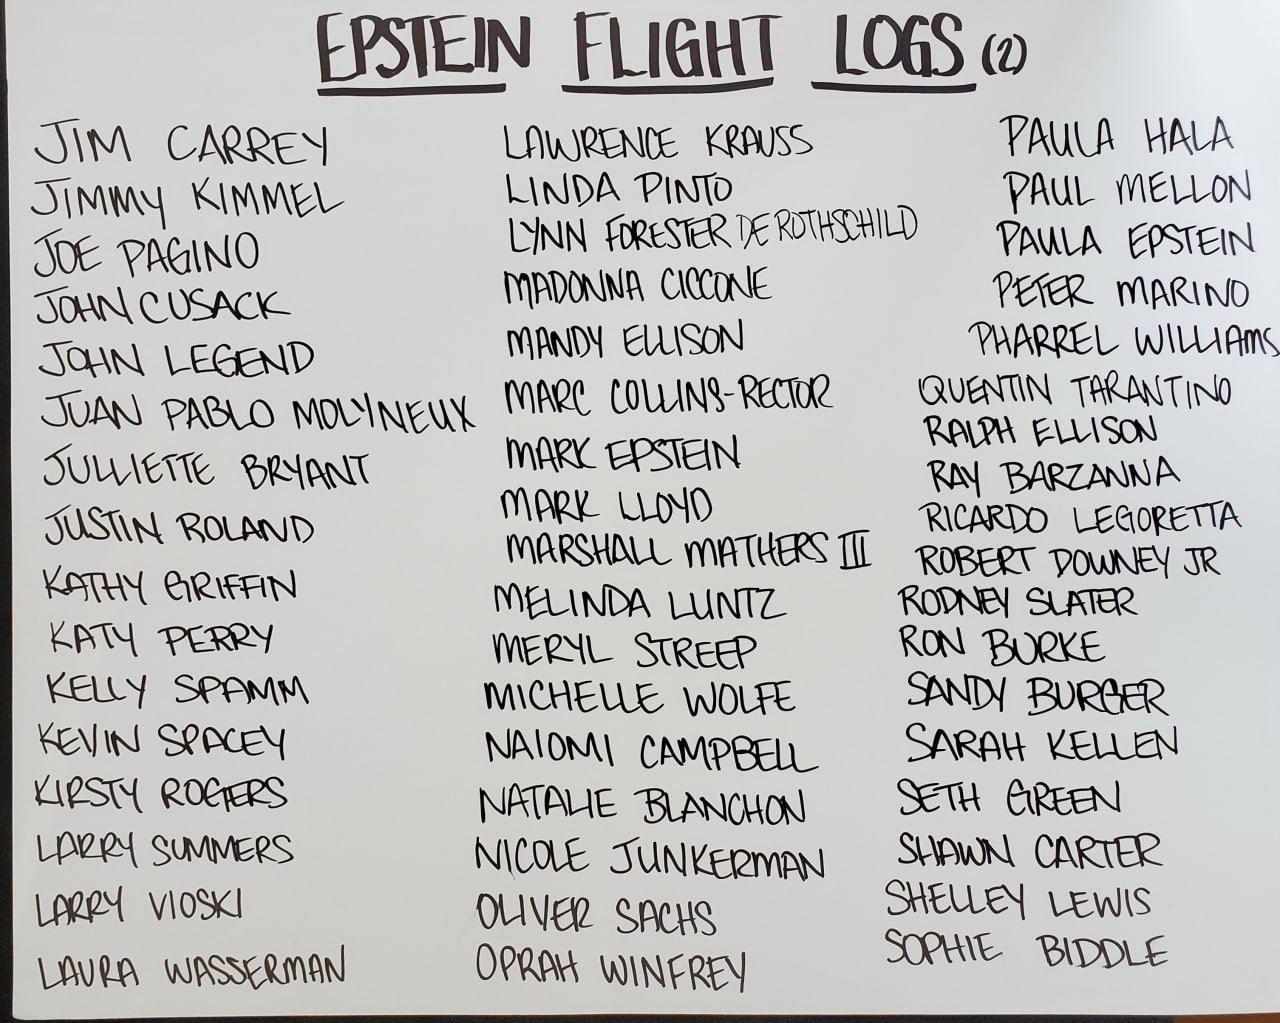 EPSTEIN FLIGHT LOGS (2)
JIM CARREY
JIMMY KIMMEL
JOE PAGINO
JOHN CUSACK
JOHN LEGEND
JUAN PABLO MOLYNEUX
JULLIETTE BRYANT
JUSTIN ROLAND
KATHY GRIFFIN
KATY PERRY
KELLY SPAMM
KEVIN SPACEY
KIRSTY ROGERS
LARRY SUMMERS
LARRY VIOSKI
LAURA WASSERMAN
LAWRENCE KRAUSS
LINDA PINTO
LYNN FORESTER DE ROTHSCHILD
MADONNA CICCONE
MANDY ELLISON
MARC COLLINS-RECTOR
MARK EPSTEIN
MARK LLOYD
MARSHALL MATHERS III
MELINDA LUNTZ
MERYL STREEP
MICHELLE WOLFE
NAIOMI CAMPBELL
NATALIE BLANCHON
NICOLE JUNKERMAN
OLIVER SACHS
OPRAH WINFREY
PAULA HALA
PAUL MELLON
PAULA EPSTEIN
PETER MARINO
PHARREL WILLIAMS
QUENTIN TARANTINO
RALPH ELLISON
RAY BARZANNA
RICARDO LEGORETTA
ROBERT DOWNEY JR
RODNEY SLATER
RON BURKE
SANDY BURGER
SARAH KELLEN
SETH GREEN
SHAWN CARTER
SHELLEY LEWIS
SOPHIE BIDDLE